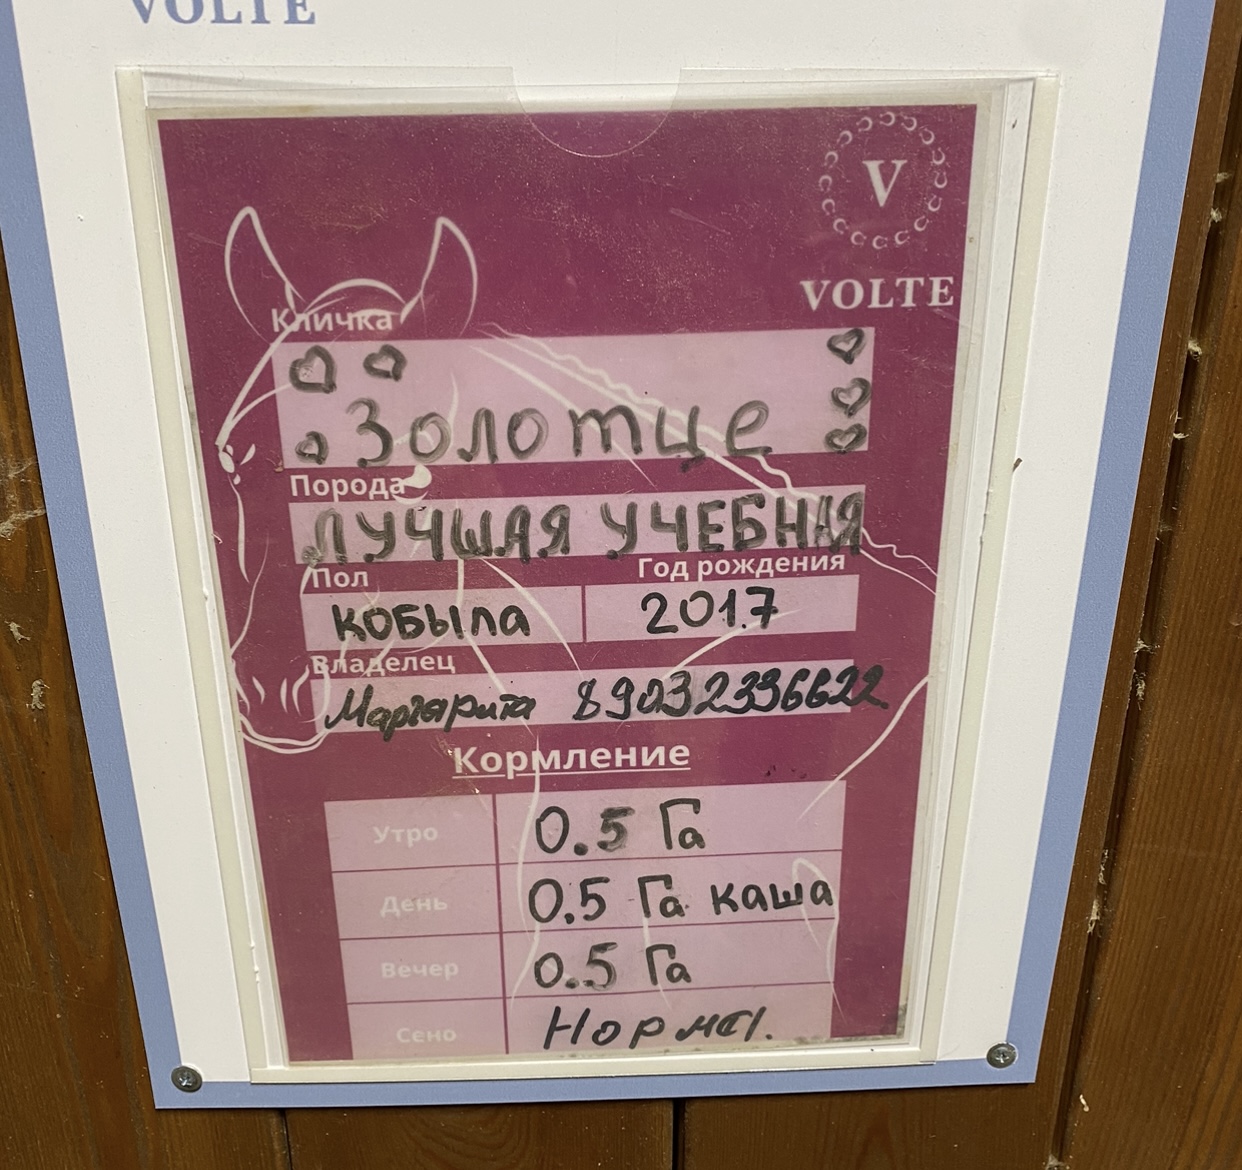 VOLTE
V
VOLTE
Кличка
Золотце
Порода
ЛУЧШАЯ УЧЕБНАЯ
Пол Год рождения
кобыла 2017
Владелец
Маргарита 89032336622
Кормление
Утро 0.5 Га
День 0.5 Га каша
Вечер 0.5 Га
Сено Норма.